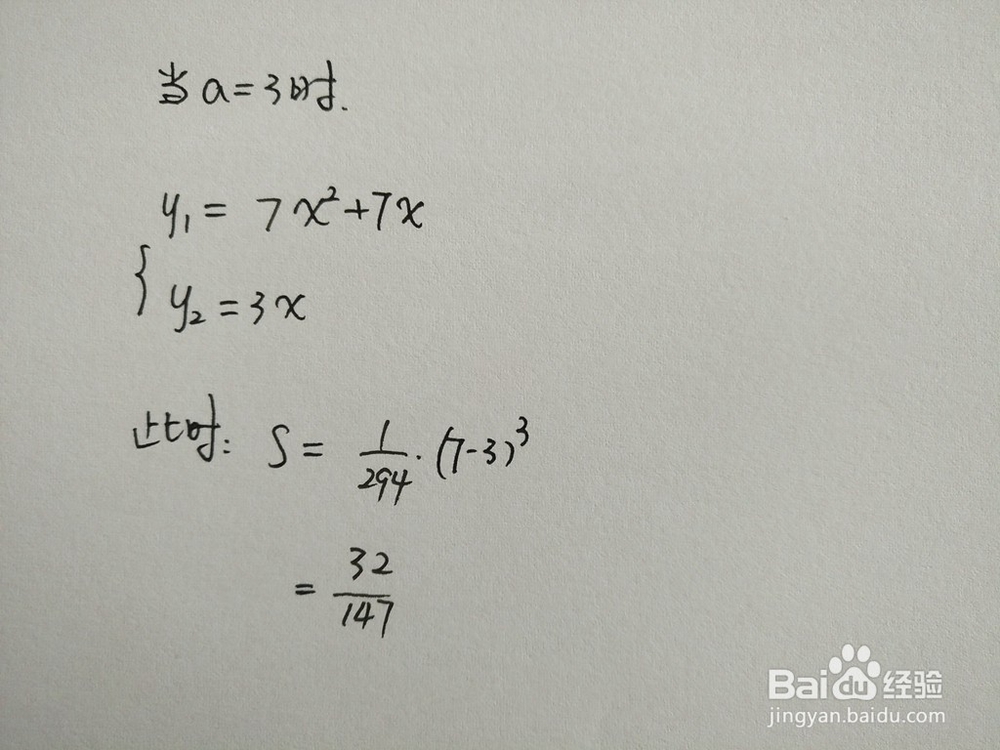 当a=3时.
y₁=7x²+7x
{
y₂=3x
此时: S=1/294·(7-3)³
=32/147
Baidu经验
jingyan.baidu.com